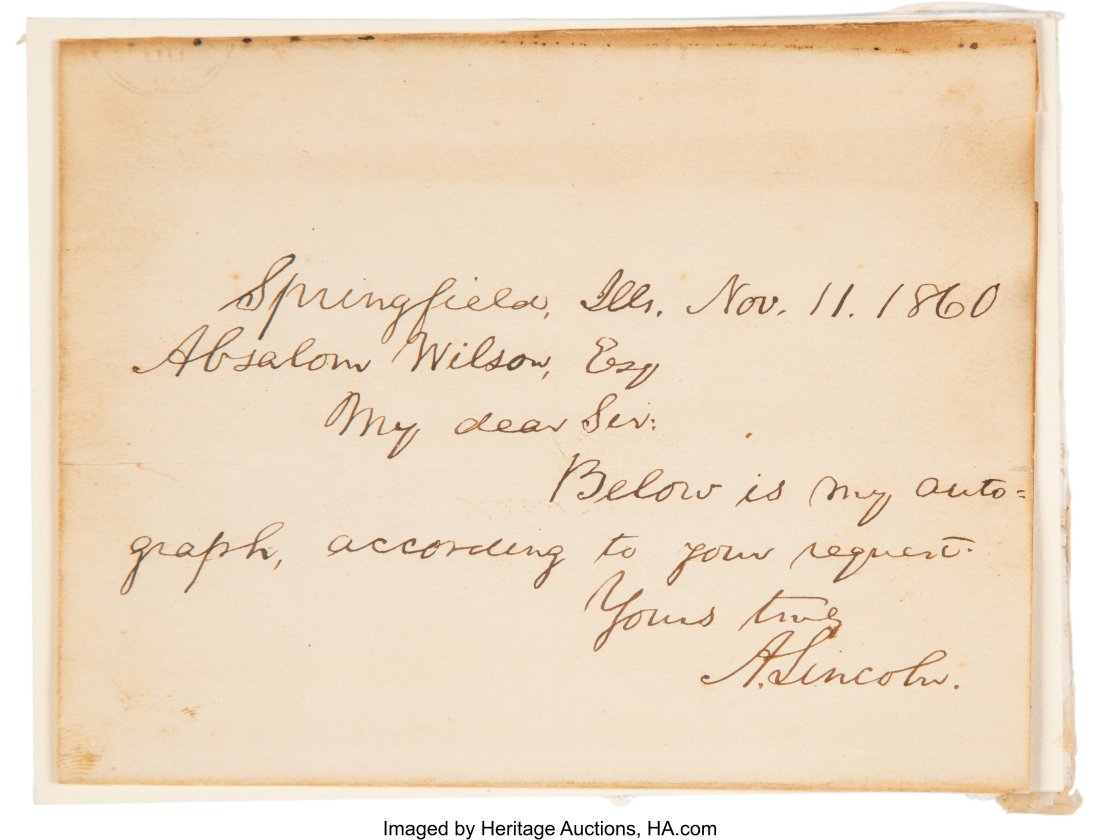 Springfield, Ills. Nov. 11. 1860
Absalom Wilson, Esq
My dear Sir:
Below is my auto=
graph, according to your request.
Yours truly
A. Lincoln.
Imaged by Heritage Auctions, HA.com